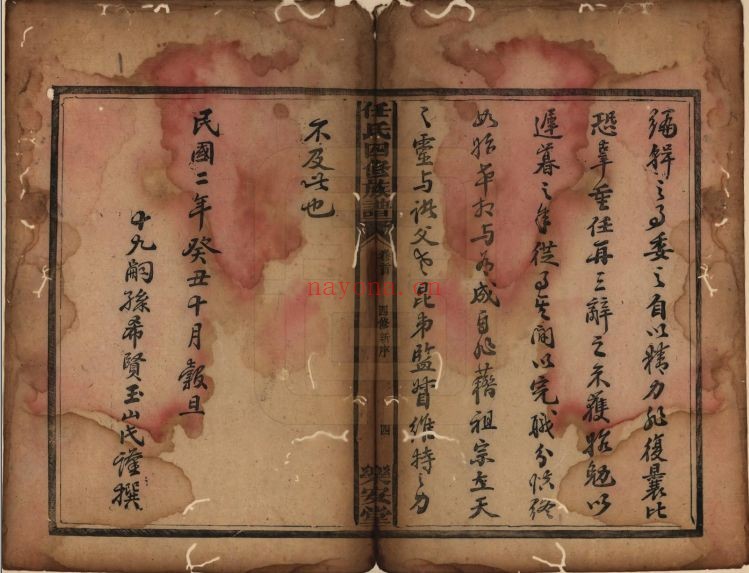 編輯之事委之自以精力非復曩比
恐辜重任再三辭之未獲強勉以
遲暮之年從事其間以完職分慎終
如始卒相与為成自非藉祖宗在天
之靈与諸父老昆弟監督維持之力
任氏四修族譜
卷首
四修新序
四
樂安堂
不及此也
民國二年癸丑十月穀旦
十九嗣孫希賢玉山氏謹撰
nayona.cn